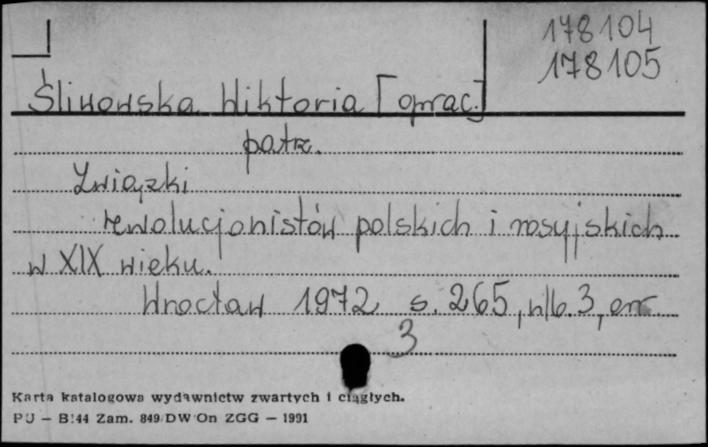 178104
178105
Śliwowska Wiktoria [oprac.]
patrz.
Związki
rewolucjonistów polskich i rosyjskich
w XIX wieku.
Wrocław 1972 s. 265, nlb. 3, err.
3
Karta katalogowa wydawnictw zwartych i ciągłych.
PU - B!44 Zam. 849/DW On ZGG - 1991